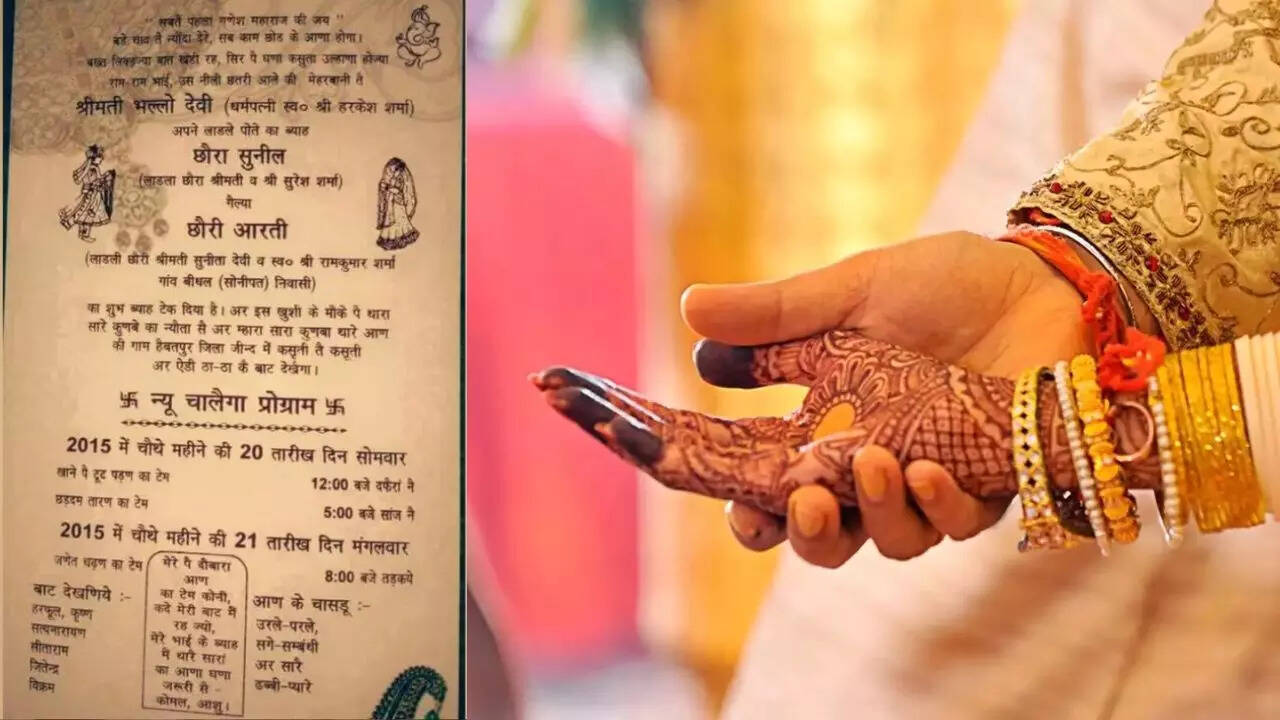 "सबतै पहलां गणेश महाराज की जय"
बडे चाव तै न्योंदा देरे, सब काम छोड के आणा होगा।
बख्त लिकड़ज्या बात खड़ी रह, सिर पै घणा कसुता उल्हाणा होज्या
राम-राम भाई, उस नीली छतरी आले की मेहरबानी तै
श्रीमती भल्लो देवी (धर्मपत्नी स्व० श्री हरकेश शर्मा)
अपने लाडले पोते का ब्याह
छौरा सुनील
(लाडला छौरा श्रीमती व श्री सुरेश शर्मा)
गैल्या
छौरी आरती
(लाडली छौरी श्रीमती सुनीता देवी व स्व० श्री रामकुमार शर्मा
गांव बीधल (सोनीपत) निवासी)
का शुभ ब्याह टेक दिया है। अर इस खुशी के मौके पै थारा
सारे कुणबे का न्यौता सै अर म्हारा सारा कुणबा थारे आण
की गाम हैबतपुर जिला जीन्द में कसुनी तै कसूती
अर ऐडी ठा-ठा के बाट देखैगा।
卐 न्यू चालैगा प्रोग्राम 卐
2015 में चौथे महीने की 20 तारीख दिन सोमवार
खाने पै टूट पड़ण का टेम 12:00 बजे दफैरां नै
छड़दम तारण का टेम 5:00 बजे सांज नै
2015 में चौथे महीने की 21 तारीख दिन मंगलवार
जणेत चढ़ण का टेम 8:00 बजे तड़कये
बाट देखणिये :-
हरफूल, कृष्ण
सत्यनारायण
सीताराम
जितेन्द्र
विक्रम
मेरे पै दौबारा
आण
का टेम कोनी,
कदे मेरी बाट मैं
रह ज्यो,
मेरे भाई के ब्याह
में थारै सारां
का आणा घणा
जरूरी सै -
कोमल, आशु।
आण के चासडू :-
उरले-परले,
सगे-सम्बंधी
अर सारै
ढब्बी-प्यारे